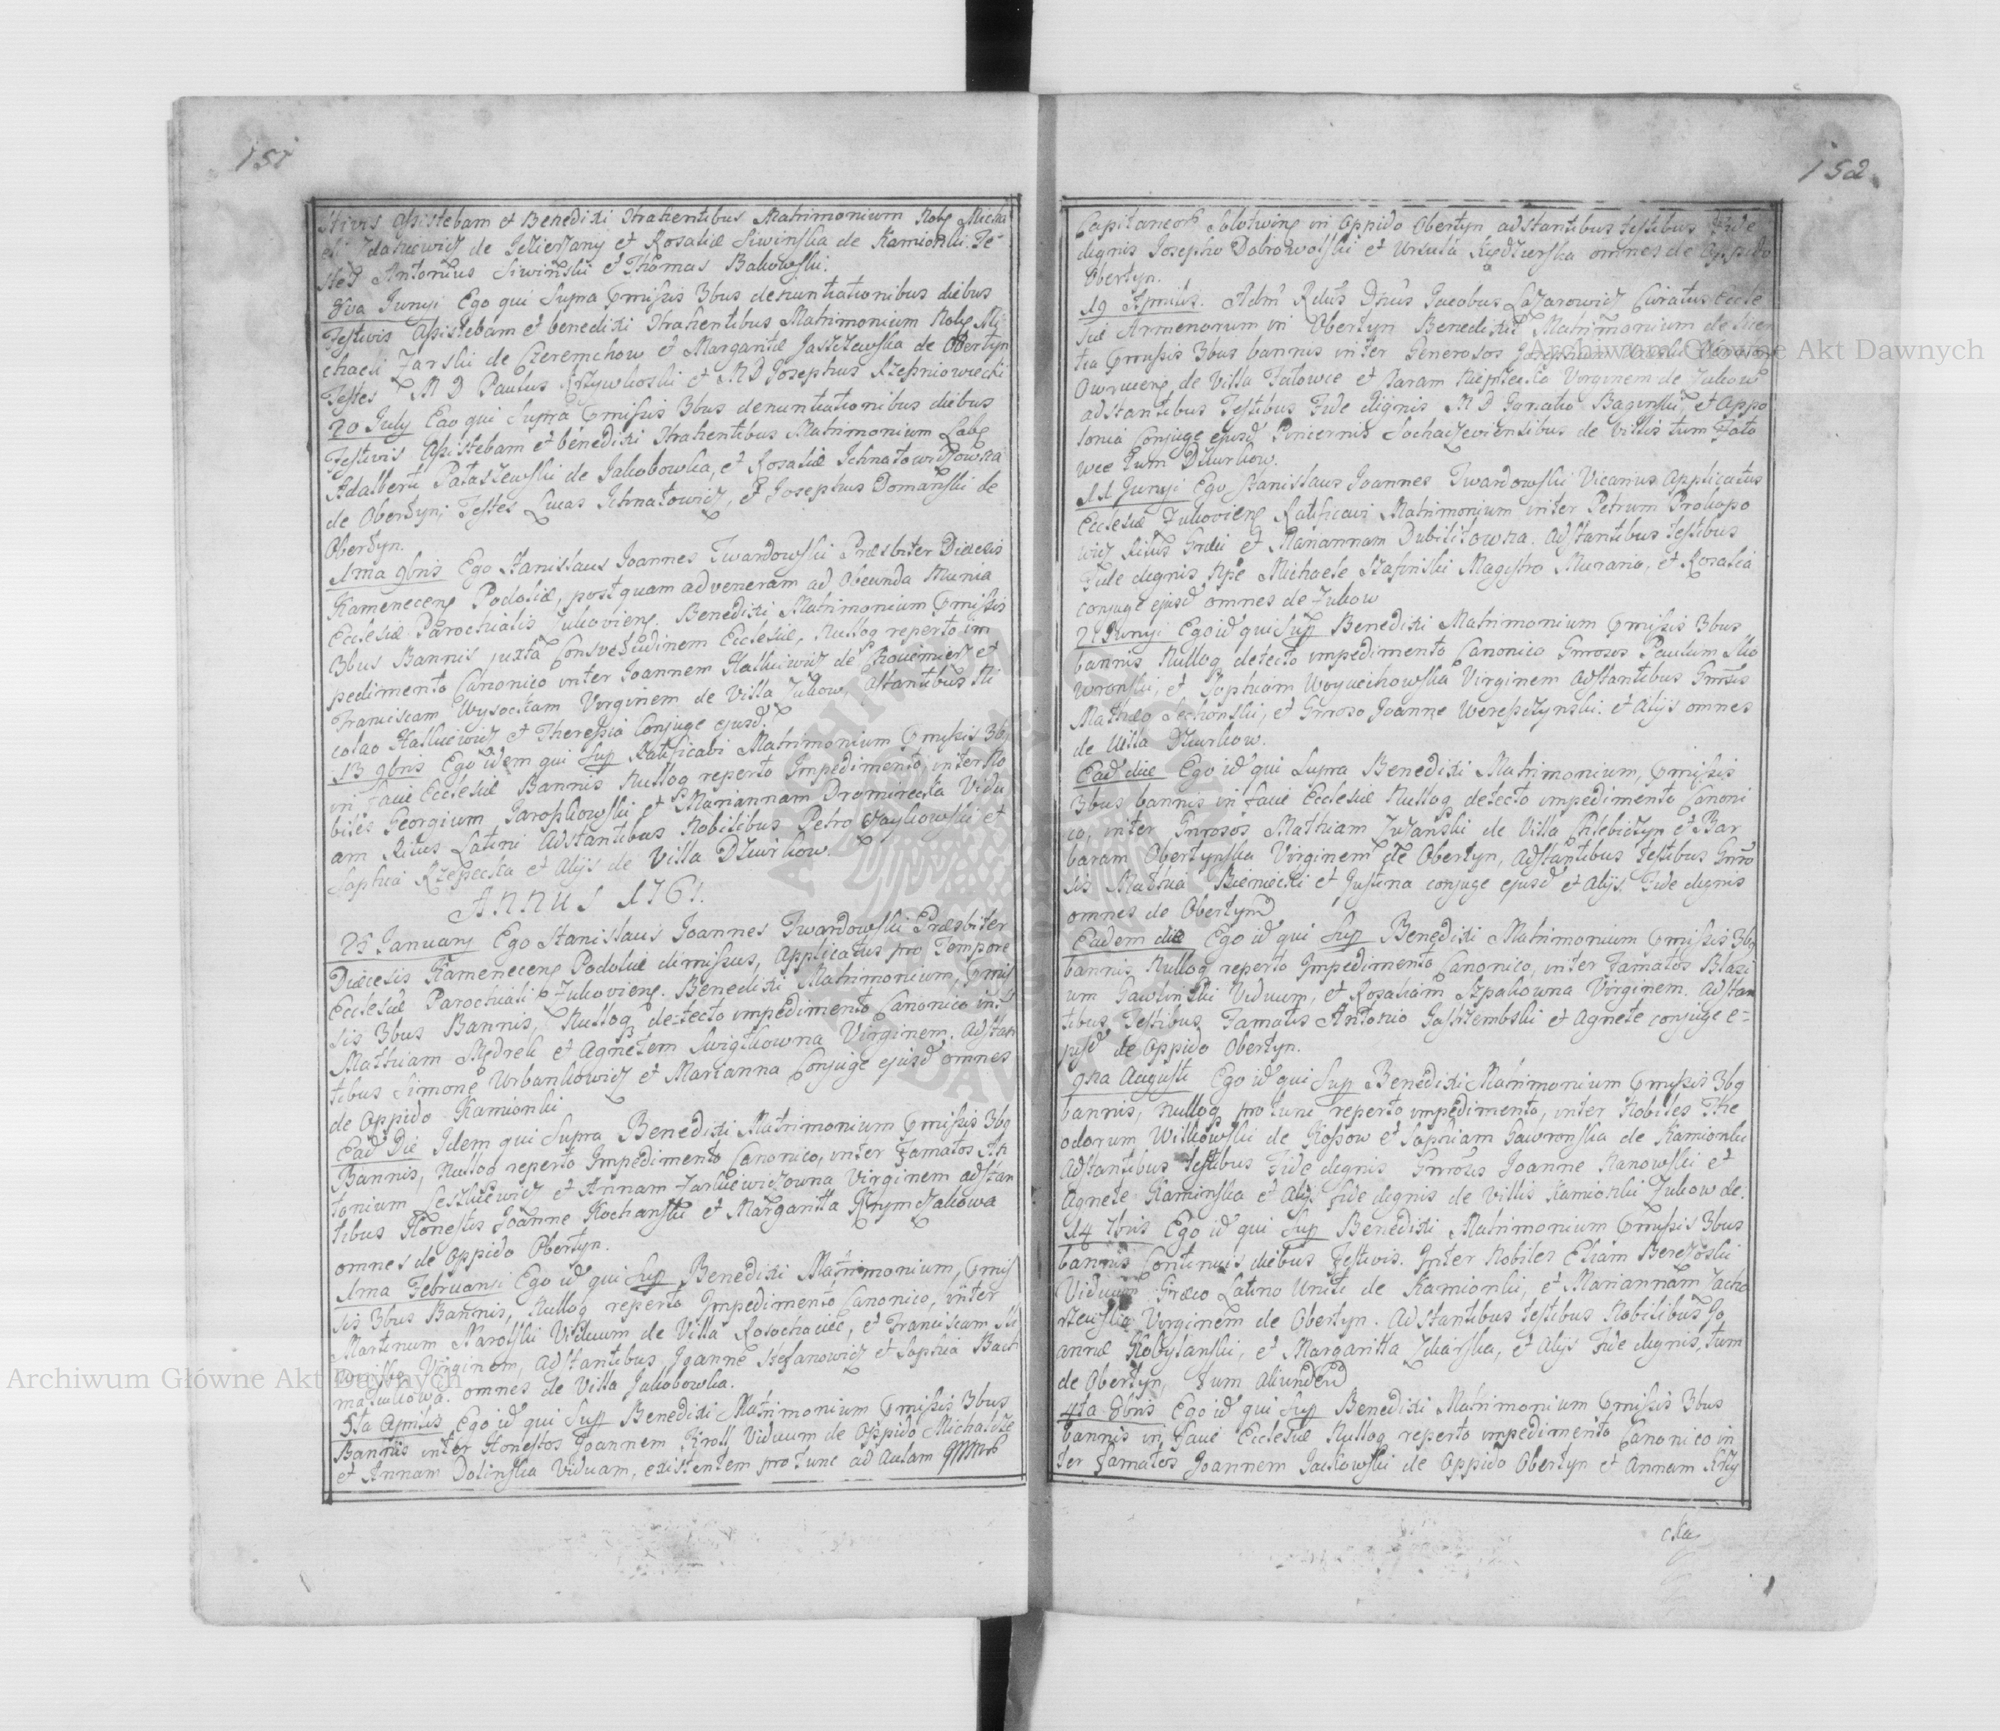 151
stivis Assistebam et Benedixi Contrahentibus Matrimonium Nobs Micha
eli de Jezierzany et Rosaliæ Siwinska de Kamionki. Te-
stes Antonius Siwinski et Thomas Bakowski.
8va Junyi Ego qui Supra Præmissis 3bus denuntiationibus diebus
Festivis Assistebam et benedixi Contrahentibus Matrimonium Nobs Mi-
chaeli Zarski de Czeremchow et Margaritæ Jaszczewska de Obertyn
Testes M D Paulus Krzywkoski et M D Josephus Rzepniowiecki
20 July Ego qui Supra Præmissis 3bus denuntiationibus diebus
Festivis Assistebam et benedixi Contrahentibus Matrimonium Labs
Adalberti Pataszewski de Jakobowka, et Rosaliæ Ichnatowiczowna
de Obertyn; Testes Lucas Ichnatowicz, et Josephus Domanski de
Obertyn.
1ma 9bris Ego Stanislaus Joannes Twardowski Præsbiter Diæcesis
Kamenecens Podoliæ, postquam adveneram ad Obeunda Munia
Ecclesiæ Parochialis Zukoviens. Benedixi Matrimonium Præmissis
3bus Bannis juxta Consvetudinem Ecclesiæ, Nulloq reperto im
pedimento Canonico inter Joannem Halkiewicz de et
Franciscam Wysockam Virginem de Villa Zukow, astantibus Ni
colao Halkiewicz et Theressia Conjuge ejusd.
13 9bris Ego idem qui Sup Ratificavi Matrimonium Præmissis 3bq
in facie Ecclesiæ Bannis Nulloq reperto Impedimento inter No
biles Georgium Jaroszkowski et Mariannam Dromirecka Vidu
am Ritus Latini Adstantibus Nobilibus Petro Zaykowski et
Sophia Rzepecka et Alijs de Villa Dzwirkow.
Annus 1761.
25 January Ego Stanislaus Joannes Twardowski Præsbiter
Diæcesis Kamenecens Podoliæ dimissus, Applicatus pro Tempore
Ecclesiæ Parochiali Zukoviens. Benedixi Matrimonium, Præmis
sis 3bus Bannis, Nulloq detecto impedimento Canonico inter
Mathiam Mędrek et Agnetem Swigtkowna Virginem. Adstan
tibus Simone Urbankowicz et Marianna Conjuge ejusd omnes
de Oppido Kamionki
Ead Die Idem qui Supra Benedixi Matrimonium Præmissis 3bq
Bannis, Nulloq reperto Impedimento Canonico, inter Famatos An
tonium Leszkiewicz et Annam Zarkiewiczowna Virginem adstan
tibus Honestis Joanne Kochanski et Margaritta Krymczakowa
omnes de Oppido Obertyn.
1ma Februarii Ego id qui Sup Benedixi Matrimonium, Præmis
sis 3bus Bannis, Nulloq reperto Impedimento Canonico, inter
Martinum Narolski Viduum de Villa Rosochaciec, et Franciscam
Virginem, adstantibus Joanne Stefanowicz et Sophia Bach
matiukowa. omnes de Villa Jakobowka.
5ta Aprilis Ego id qui Sup Benedixi Matrimonium Præmissis 3bus
Bannis inter Honestos Joannem Kroll Viduum de Oppido Michalcze
et Annam Dolinska Viduam, existentem pro tunc ad Aulam
152
Capitaneor Solotwins in Oppido Obertyn adstantibus testibus Fide
dignis Josepho Dobrowolski et Ursula Kędzierska omnes de Oppido
Obertyn.
19 Aprilis. Adm Rdus Dnus Jacobus Lazarowicz Curatus Eccle
siæ Armenorum in Obertyn Benedixit Matrimonium de licen
tia Præmissis 3bus bannis inter Generosos Josephum
de Villa Fatowce et Baram Virginem de Zukow
adstantibus Testibus Fide dignis M D Ignatio Baginski, et Appo
lonia Conjuge ejusd Pincernis Sochaczeviensibus de Villis tum Fato
wce tum Dzwirkow.
11 Junyi Ego Stanislaus Joannes Twardowski Vicarius Applicatus
Ecclesiæ Zukoviens Ratificavi Matrimonium inter Petrum Prokopo
wicz Ritus Græci et Mariannam Dubilitowna. Adstantibus testibus
Fide dignis Michaele Szafinski Magistro Murario, et Rosalia
conjuge ejusd omnes de Zukow
21 Junyi Ego id qui Sup Benedixi Matrimonium Præmissis 3bus
bannis Nulloq detecto impedimento Canonico Gnrosos Paulum Sko
wronski, et Sophiam Woyciechowska Virginem Adstantibus Gnrosis
Mathæo Sechonski, et Gnroso Joanne Wereszczynski. et Alijs omnes
de Villa Dzwirkow.
Ead die Ego id qui Supra Benedixi Matrimonium, Præmissis
3bus bannis in facie Ecclesiæ Nulloq detecto impedimento Canoni
co, inter Gnrosos Mathiam Zuzanski de Villa Chlebiczyn et Bar
baram Obertynska Virginem de Obertyn, Adstantibus Testibus Gnro
sis Mathia Bieniecki et Justina conjuge ejusd et Alijs, Fide dignis
omnes de Obertyn
Eadem die Ego id qui Sup Benedixi Matrimonium Præmissis 3bq
bannis Nulloq reperto Impedimento Canonico, inter Famatos Blasi
um Gawlinski Viduum, et Rosaliam Szpakowna Virginem. Adstan
tibus Testibus Famatis Antonio Jastrzembski et Agnete conjuge e-
jusd de Oppido Obertyn.
9na Augusti Ego id qui Sup Benedixi Matrimonium Præmissis 3bq
bannis, Nulloq pro tunc reperto impedimento, inter Nobiles The
odorum Witkowski de Kossow et Sophiam Gawronska de Kamionki
Adstantibus testibus Fide dignis Gnrosis Joanne Nanowski et
Agnete Kaminska et Alys fide dignis de Villis Kamionki Zukow de.
14 7bris Ego id qui Sup Benedixi Matrimonium Præmissis 3bus
bannis Continuis diebus Festivis. Inter Nobiles Eliam Berezoski
Viduum Græco Latino Uniti de Kamionki, et Mariannam Zacha
Virginem de Obertyn. Adstantibus testibus Nobilibus Jo
anne Kobylanski, et Margaritta Zdiarska, et Alijs Fide dignis, tum
de Obertyn, tum aliunde
4ta 8bris Ego id qui Sup Benedixi Matrimonium Præmissis 3bus
bannis in facie Ecclesiæ Nulloq reperto impedimento Canonico in
ter Famatos Joannem Jackowski de Oppido Obertyn et Annam
cka
Archiwum Główne Akt Dawnych
Archiwum Główne Akt Dawnych